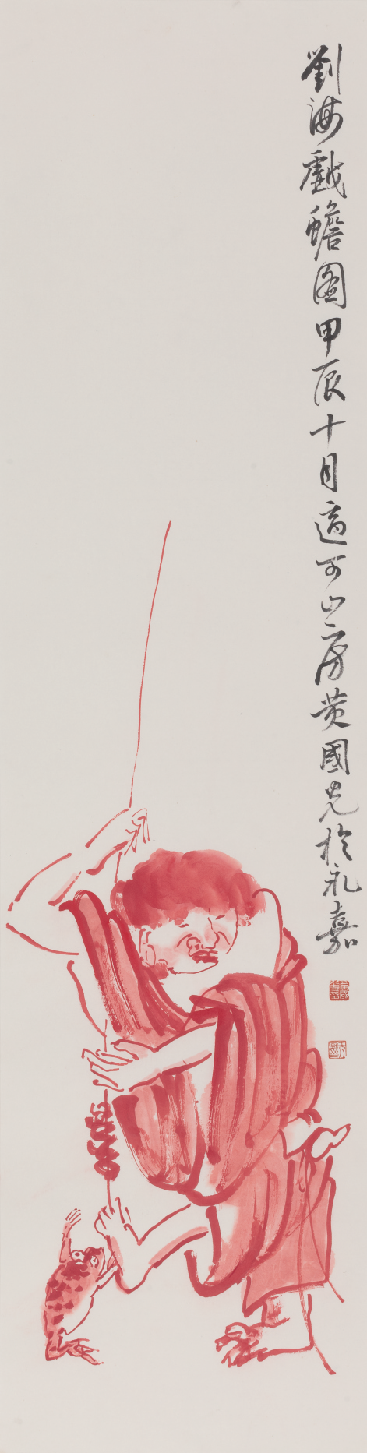 劉海戲蟾图甲辰十月適可山房黄國光於礼嘉